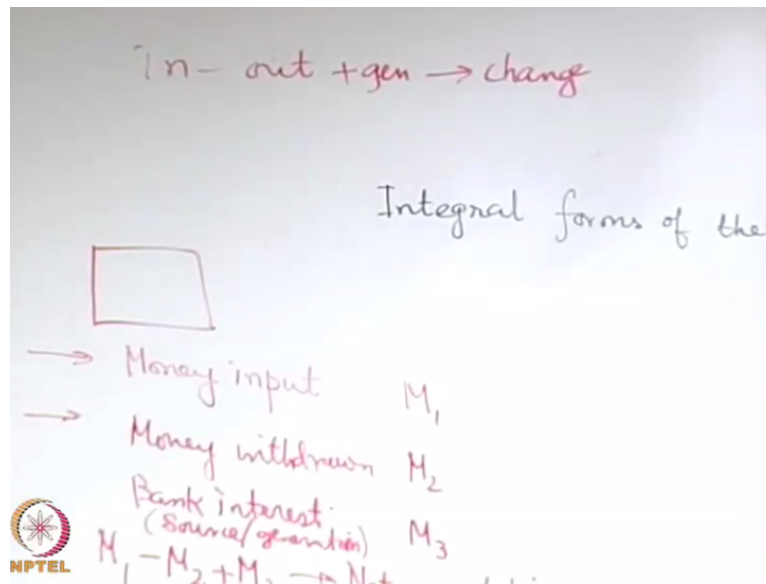 In - out + gen → change
Integral forms of the
→ Money input M₁
→ Money withdrawn M₂
Bank interest M₃
(Source/generation)
M₁ - M₂ + M₃ → Net
NPTEL